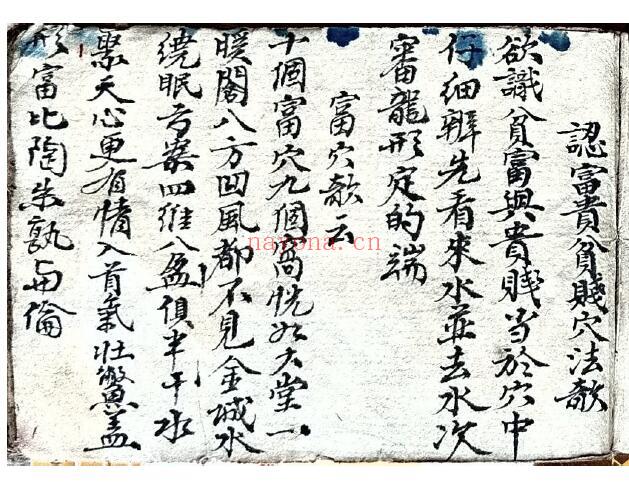 認富貴貧賤穴法歌
欲識貧富與貴賤当於穴中
仔細辨先看來水並去水次
審龍形定的端
富穴歌云
十個富穴九個窩恍如大堂一
暖閣八方凹風都不見金城水
繞眠弓案四維八
聚天心更有情入首氣壯鱉盖
形富比陶朱孰与倫
nayona.cn